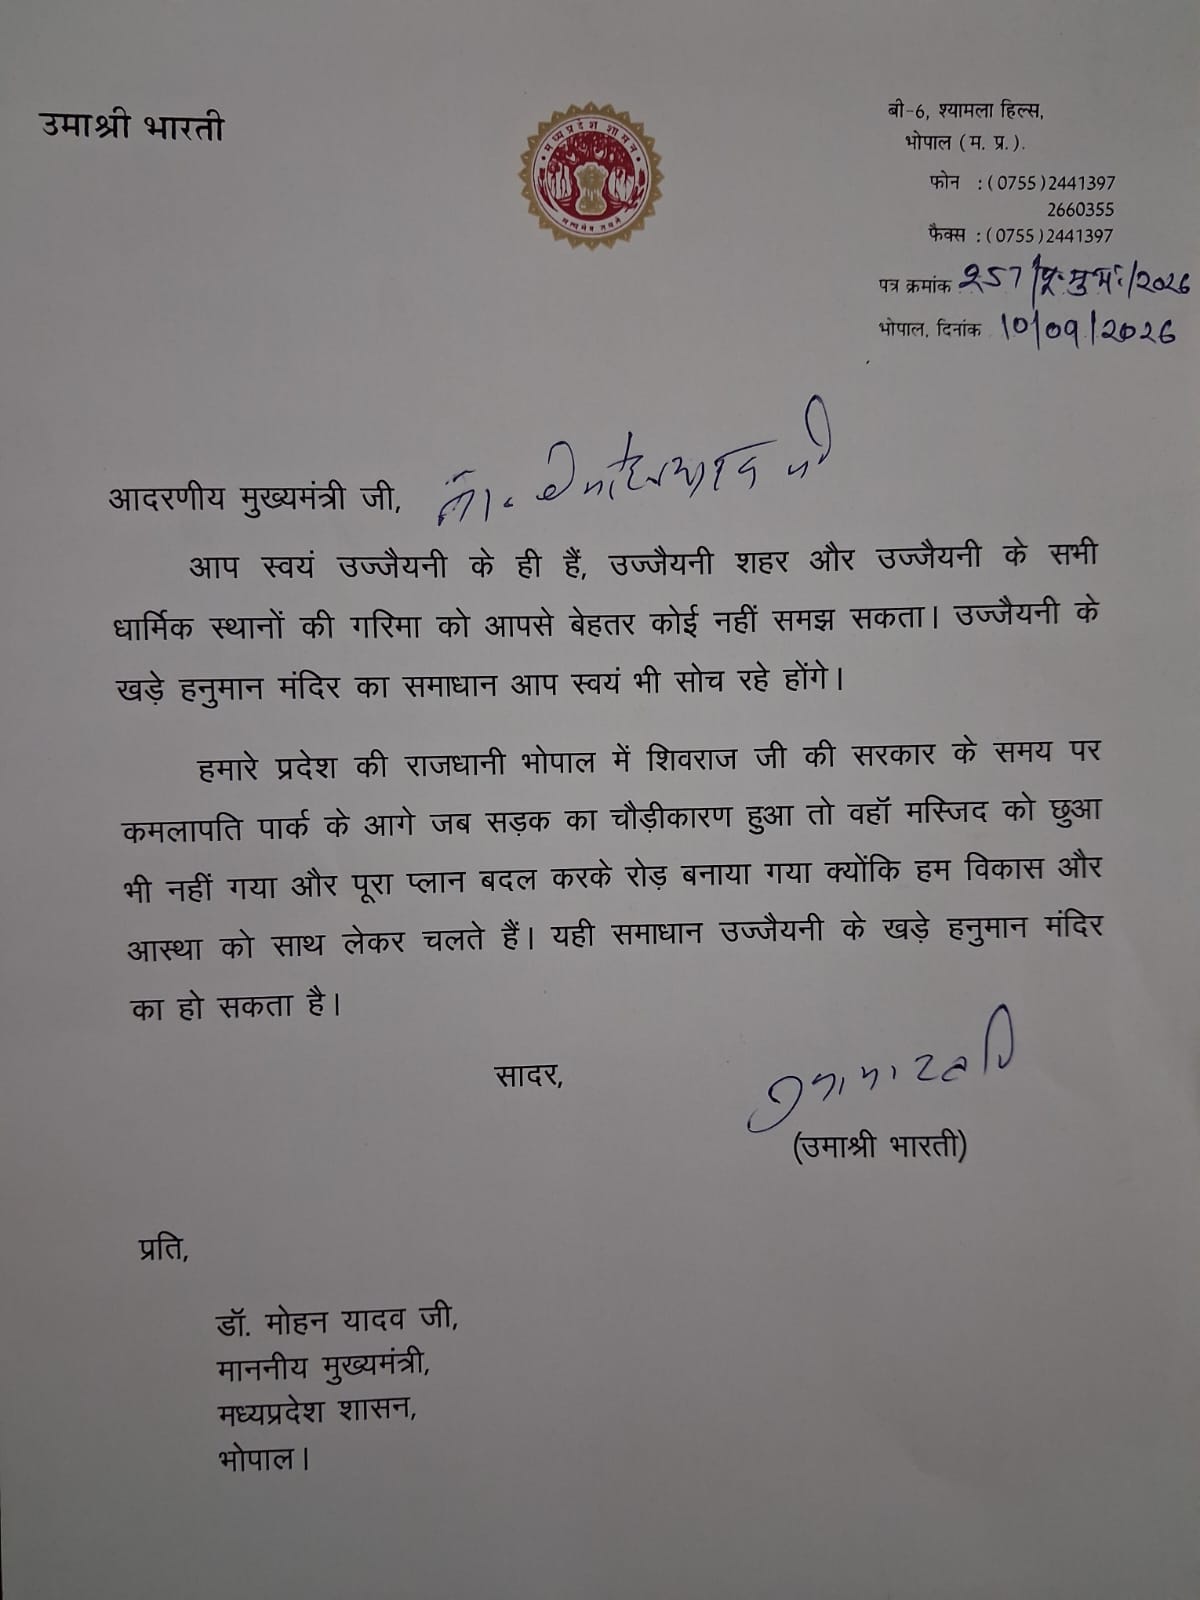 उमाश्री भारती
मध्यप्रदेश शासन
सत्यमेव जयते
बी-6, श्यामला हिल्स,
भोपाल (म. प्र.).
फोन :(0755)2441397
2660355
फैक्स :(0755)2441397
पत्र क्रमांक 257/पू.मु.मं./2026
भोपाल, दिनांक 10/09/2026
आदरणीय मुख्यमंत्री जी, मोहन यादव जी
आप स्वयं उज्जैयनी के ही हैं, उज्जैयनी शहर और उज्जैयनी के सभी
धार्मिक स्थानों की गरिमा को आपसे बेहतर कोई नहीं समझ सकता। उज्जैयनी के
खड़े हनुमान मंदिर का समाधान आप स्वयं भी सोच रहे होंगे।
हमारे प्रदेश की राजधानी भोपाल में शिवराज जी की सरकार के समय पर
कमलापति पार्क के आगे जब सड़क का चौड़ीकारण हुआ तो वहॉ मस्जिद को छुआ
भी नहीं गया और पूरा प्लान बदल करके रोड़ बनाया गया क्योंकि हम विकास और
आस्था को साथ लेकर चलते हैं। यही समाधान उज्जैयनी के खड़े हनुमान मंदिर
का हो सकता है।
सादर,
उमा भारती
(उमाश्री भारती)
प्रति,
डॉ. मोहन यादव जी,
माननीय मुख्यमंत्री,
मध्यप्रदेश शासन,
भोपाल।